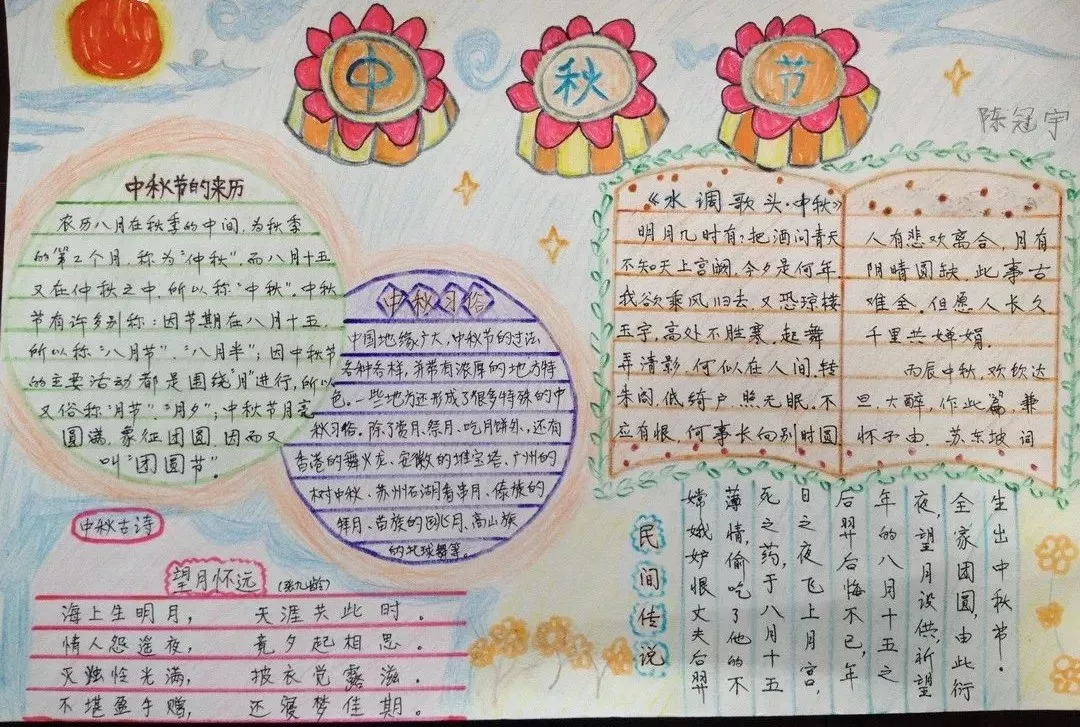 中秋节
陈冠宇
中秋节的来历
农历八月在秋季的中间,为秋季
的第2个月,称为"仲秋",而八月十五
又在仲秋之中,所以称"中秋"。中秋
节有许多别称:因节期在八月十五,
所以称"八月节"、"八月半";因中秋节
的主要活动都是围绕"月"进行,所以
又俗称"月节"、"月夕";中秋节月亮
圆满,象征团圆,因而又
叫"团圆节"。
中秋习俗
中国地缘广大,中秋节的过法
各种各样,并带有浓厚的地方特
色。一些地方还形成了很多特殊的中
秋习俗。除了赏月、祭月、吃月饼外,还有
香港的舞火龙、安徽的堆宝塔、广州的
树中秋、苏州石湖看串月、傣族的
拜月、苗族的跳月、高山族
的托球舞等。
《水调歌头·中秋》
明月几时有?把酒问青天
不知天上宫阙,今夕是何年
我欲乘风归去,又恐琼楼
玉宇,高处不胜寒,起舞
弄清影,何似在人间.转
朱阁,低绮户,照无眠.不
应有恨,何事长向别时圆
人有悲欢离合,月有
阴晴圆缺,此事古
难全.但愿人长久
千里共婵娟.
丙辰中秋,欢饮达
旦,大醉,作此篇,兼
怀子由.苏东坡 词
中秋古诗
望月怀远 (张九龄)
海上生明月, 天涯共此时。
情人怨遥夜, 竟夕起相思。
灭烛怜光满, 披衣觉露滋。
不堪盈手赠, 还寝梦佳期。
民间传说
嫦娥妒恨丈夫后羿
薄情,偷吃了他的不
死之药,于八月十五
日之夜飞上月宫,
后羿后悔不已,年
年的八月十五之
夜,望月设供,祈望
全家团圆,由此衍
生出中秋节。